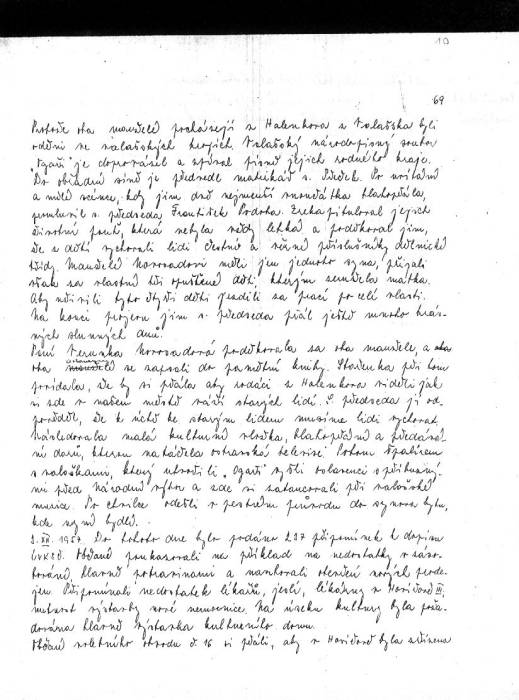 10
69
Protože oba manželé pocházejí z Halenkova z Valašska byli
oděni ve valašských krojích. Valašský národopisný soubor
"Ogaři" je doprovázel a zpíval písně jejich rodného kraje.
Do obřadní síně je předvedl matrikář s. Dudek. Po uvítání
a milé scénce, kdy jim dvě nejmenší neviňátka blahopřála,
promluvil s. předseda František Podroha. Zrekapituloval jejich
životní pouť, která nebyla vždy lehká a poděkoval jim,
že z dětí vychovali lidi čestné a věrné příslušníky dělnické
třídy. Manželé Navrodovi měli jen jednoho syna, přijali
však za vlastní tři opuštěné děti, kterým zemřela matka.
Aby uživili tyto čtyři děti jezdili za prací po celé vlasti.
Na konci projevu jim s. předseda přál ještě mnoho krás-
ných slunných dnů.
Paní Veronika poděkovala za oba manžele, a
oba se zapsali do pamětní knihy. Stařenka při tom
povídala, že by si přála aby rodáci z Halenkova viděli jak
si zde v našem městě váží starých lidí. S. předseda jí od-
pověděl, že k úctě ke starým lidem musíme lidi vychovat.
Následovala malá kulturní vložka, blahopřání a předává-
ní darů, kterou natáčela ostravská televise. Potom špalírem
s valaškami, který utvořili "Ogaři" vyšli oslavenci s přítomný-
mi před Národní výbor a zde si zatancovali při valašské
muzice. Po chvilce odešli v pestrém průvodu do synova bytu,
kde nyní bydlí.
3. XII. 1957. Do tohoto dne bylo podáno 237 připomínek k dopisu
ÚV KSČ. Občané poukazovali na příklad na nedostatky v záso-
bování, hlavně potravinami a navrhovali otevření nových prode-
jen. Připomínali nedostatek lékařů, jeslí, lékárny v Havířově III,
nutnost výstavby nové nemocnice. Na úseku kultury byla poža-
dována hlavně výstavba kulturního domu.
Občané volebního obvodu č. 16 si přáli, aby v Havířově byla zřízena